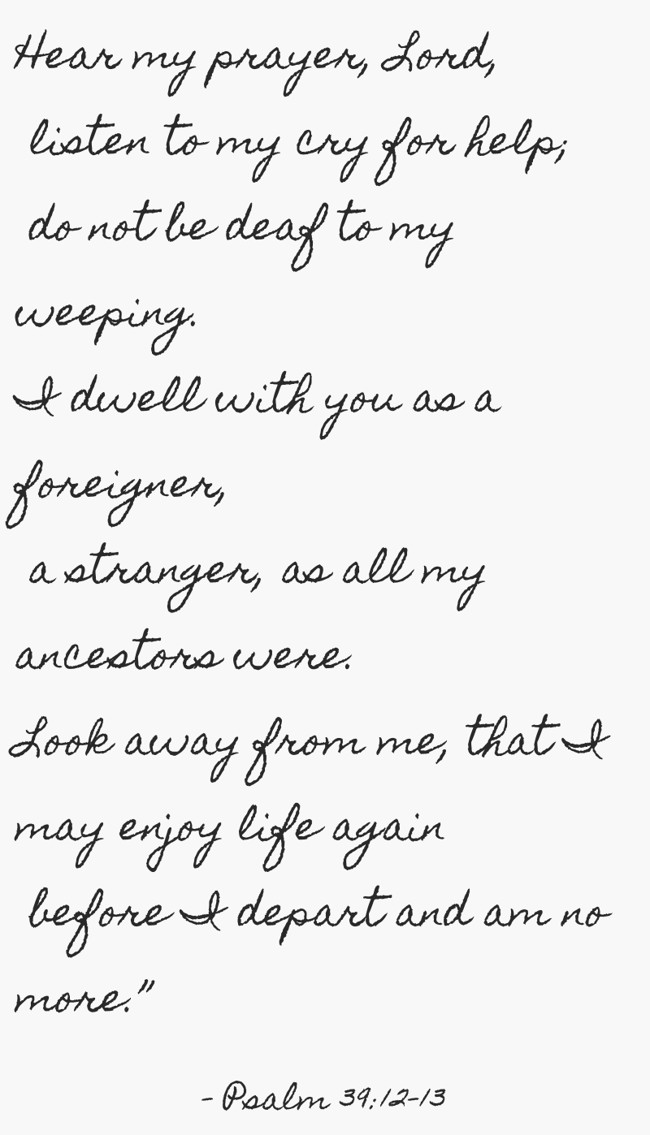 Hear my prayer, Lord,
listen to my cry for help;
do not be deaf to my
weeping.
I dwell with you as a
foreigner,
a stranger, as all my
ancestors were.
Look away from me, that I
may enjoy life again
before I depart and am no
more.”
- Psalm 39:12-13